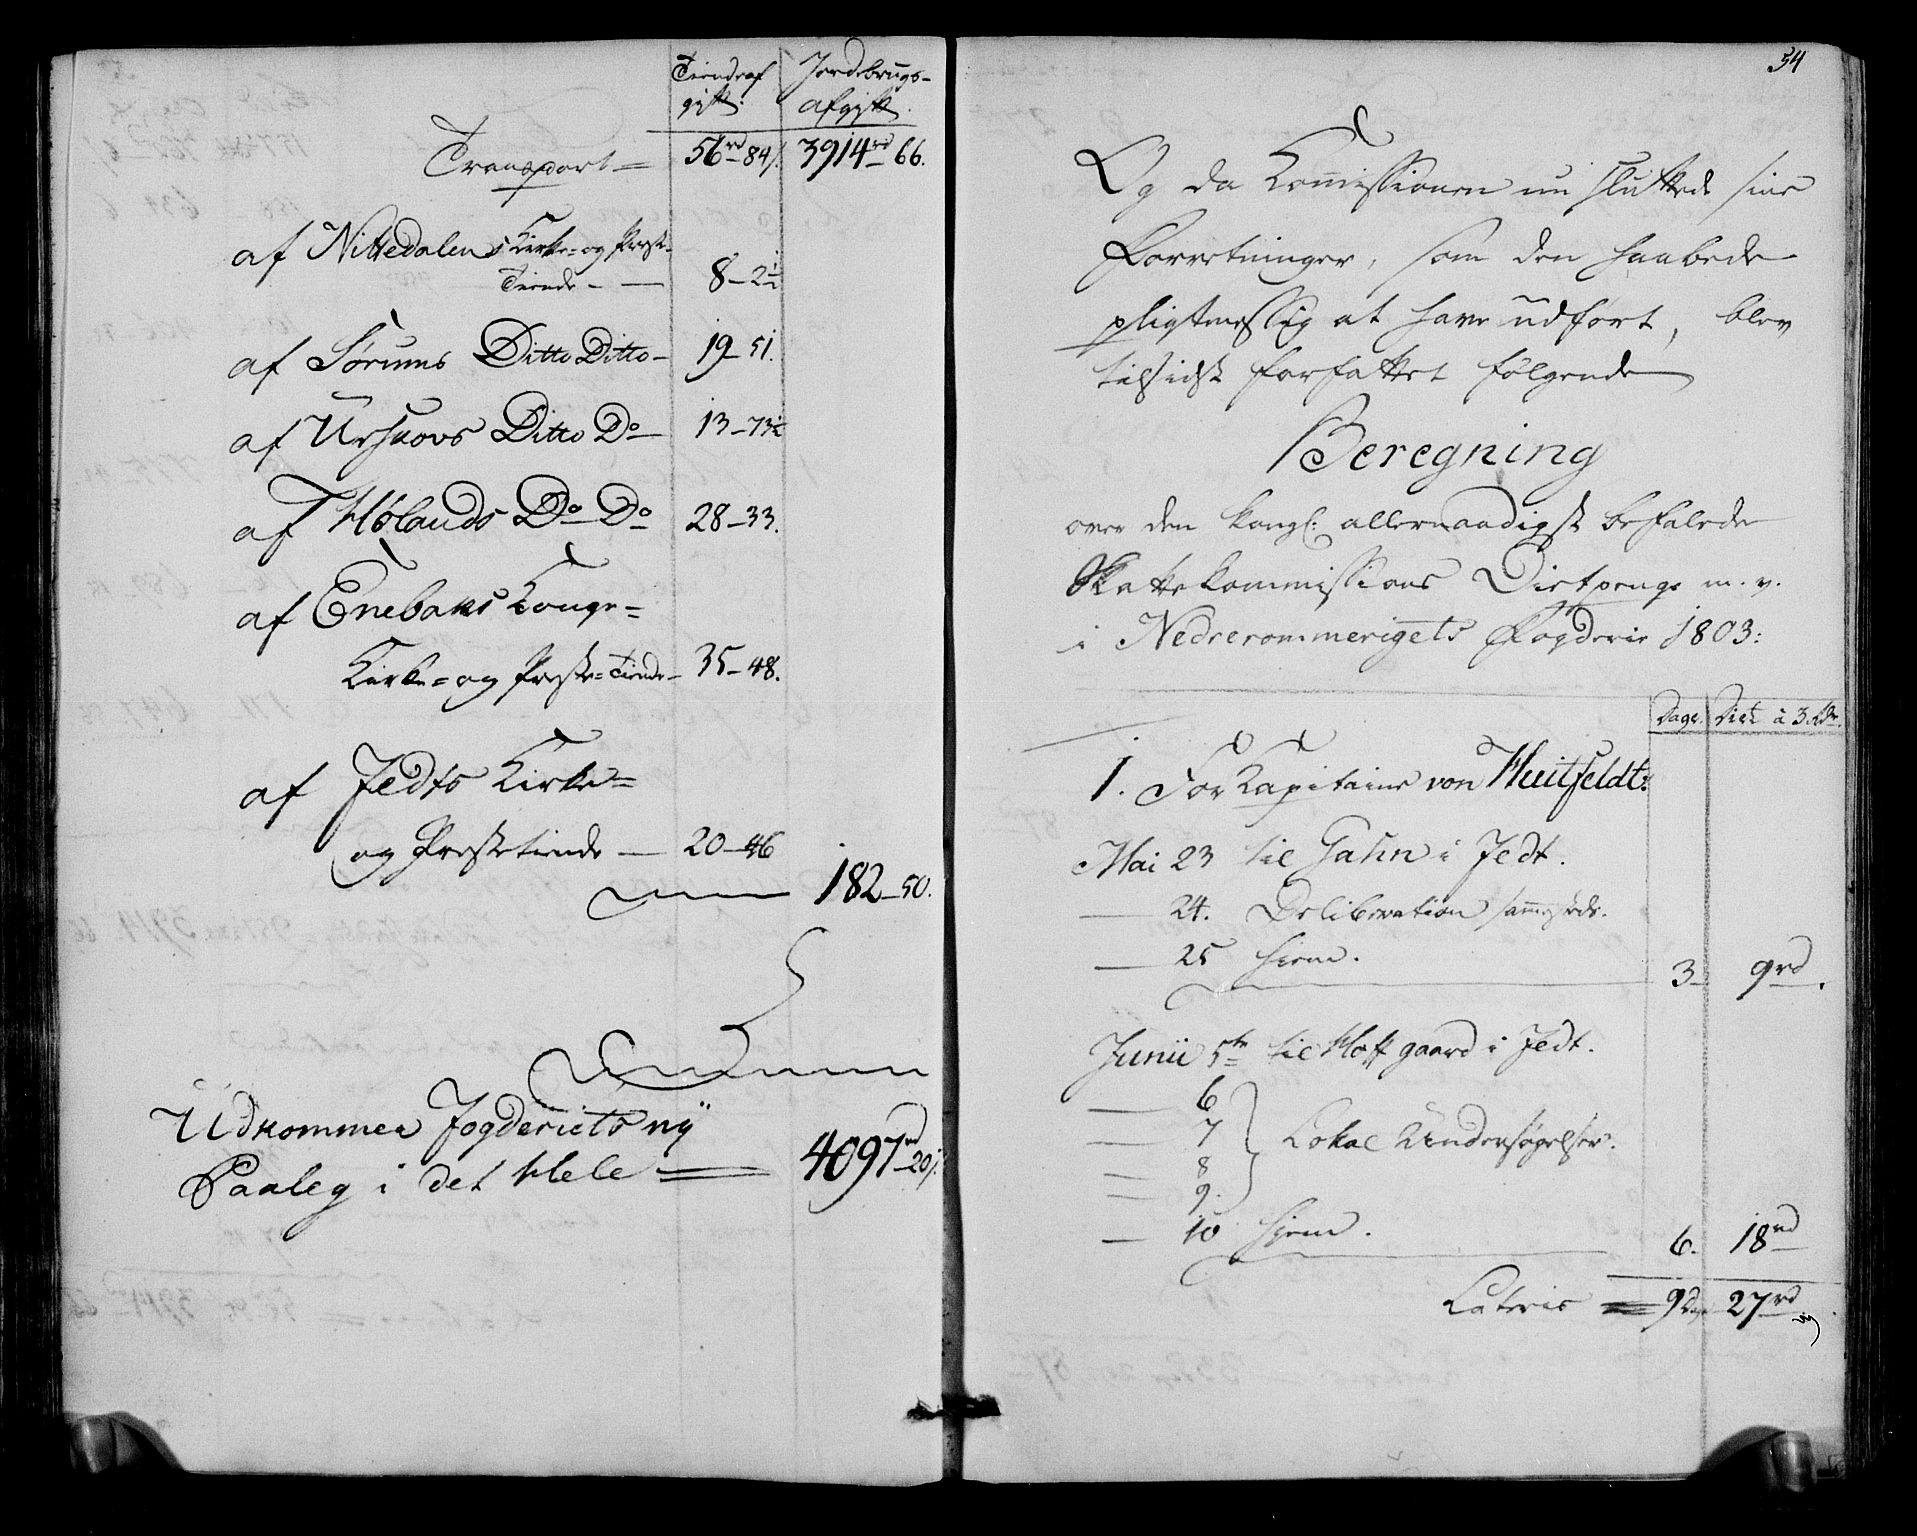 Tiendeaf Jordebrugs-
gift. afgift.
Transport = 56rd 84s. 3914rd 66.
af Nittedalens Kirke- og Preste-
Tiende - — 8 - 2½
af Sørums Ditto Ditto - 19 - 51.
af Urskovs Ditto Do — 13 - 73½
af Hølands Do Do 28 - 33.
af Enebaks Konge-
Kirke- og Preste-Tiende - 35 - 48.
af Fedts Kirke-
og Prestetiende — 20 - 46
182 - 50.
Udkommer Fogderiets ny
Paaleg i det Hele = 4097rd 20s.
54
Og da Kommissionen nu sluttede sine
Forretninger, som den haabede
pligtmessig at have udført, blev
tilsidst forfattet følgende
Beregning
over den kongl: allernaadigst befalede
Skattekommissions Dietpenge m. v.
i Nedreromerigets Fogderie 1803:
Dage. Diet à 3 Rdr.
1. For Kapitaine von Huitfeldt:
Mai 23 til Gahn i Fedt.
— 24. Deliberation sammesteds.
— 25 hiem.
3 9rd.
Junii 5te til Hoff gaard i Fedt.
— 6
— 7 Lokal Undersøgelser.
— 8
— 9.
— 10 hjem.
6. 18rd
Lateris = 9 Dage 27rd